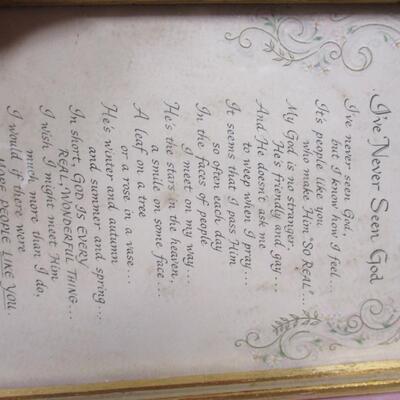 I've Never Seen God
I've never seen God,
but I know how I feel...
It's people like you
who make Him "SO REAL"...
My God is no stranger,
He's friendly and gay...
And He doesn't ask me
to weep when I pray...
It seems that I pass Him
so often each day
In the faces of people
I meet on my way...
He's the stars in the heaven,
a smile on some face...
A leaf on a tree
or a rose in a vase...
He's winter and autumn
and summer and spring...
In short, GOD IS EVERY
REAL, WONDERFUL THING...
I wish I might meet Him
much more than I do,
I would if there were
MORE PEOPLE LIKE YOU.